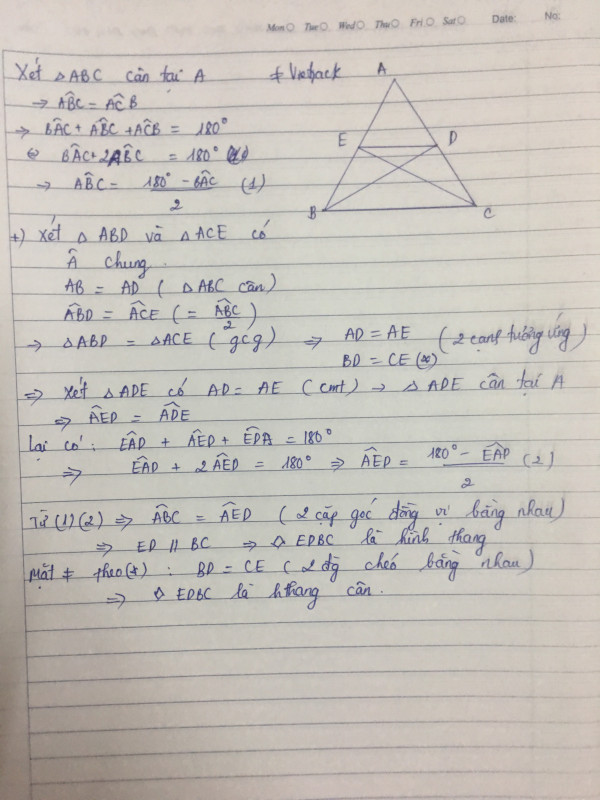 Mon Tue Wed Thu Fri Sat Date: No:
Xét △ABC cân tại A ≠ Vietjack
→ ABC = ACB
→ BAC + ABC + ACB = 180°
⇔ BAC + 2ABC = 180°
→ ABC = (180° - BAC)/2 (1)
+) Xét △ ABD và △ ACE có
 chung
AB = AD ( △ABC cân)
ABD = ACE ( = ABC/2 )
→ △ABD = △ACE ( gcg) ⇒ AD = AE ( 2 cạnh tương ứng)
BD = CE (*)
⇒ Xét △ADE có AD = AE ( cmt) → △ ADE cân tại A
⇒ AED = ADE
Lại có: EAD + AED + EDA = 180°
⇒ EAD + 2AED = 180° ⇒ AED = (180° - EAD)/2 (2)
Từ (1)(2) ⇒ ABC = AED ( 2 cặp góc đồng vị bằng nhau)
⇒ ED // BC ⇒ ◇ EDBC là hình thang
Mặt ≠ theo(*) : BD = CE ( 2 đg chéo bằng nhau)
⇒ ◇ EDBC là hthang cân.
A
E D
B C